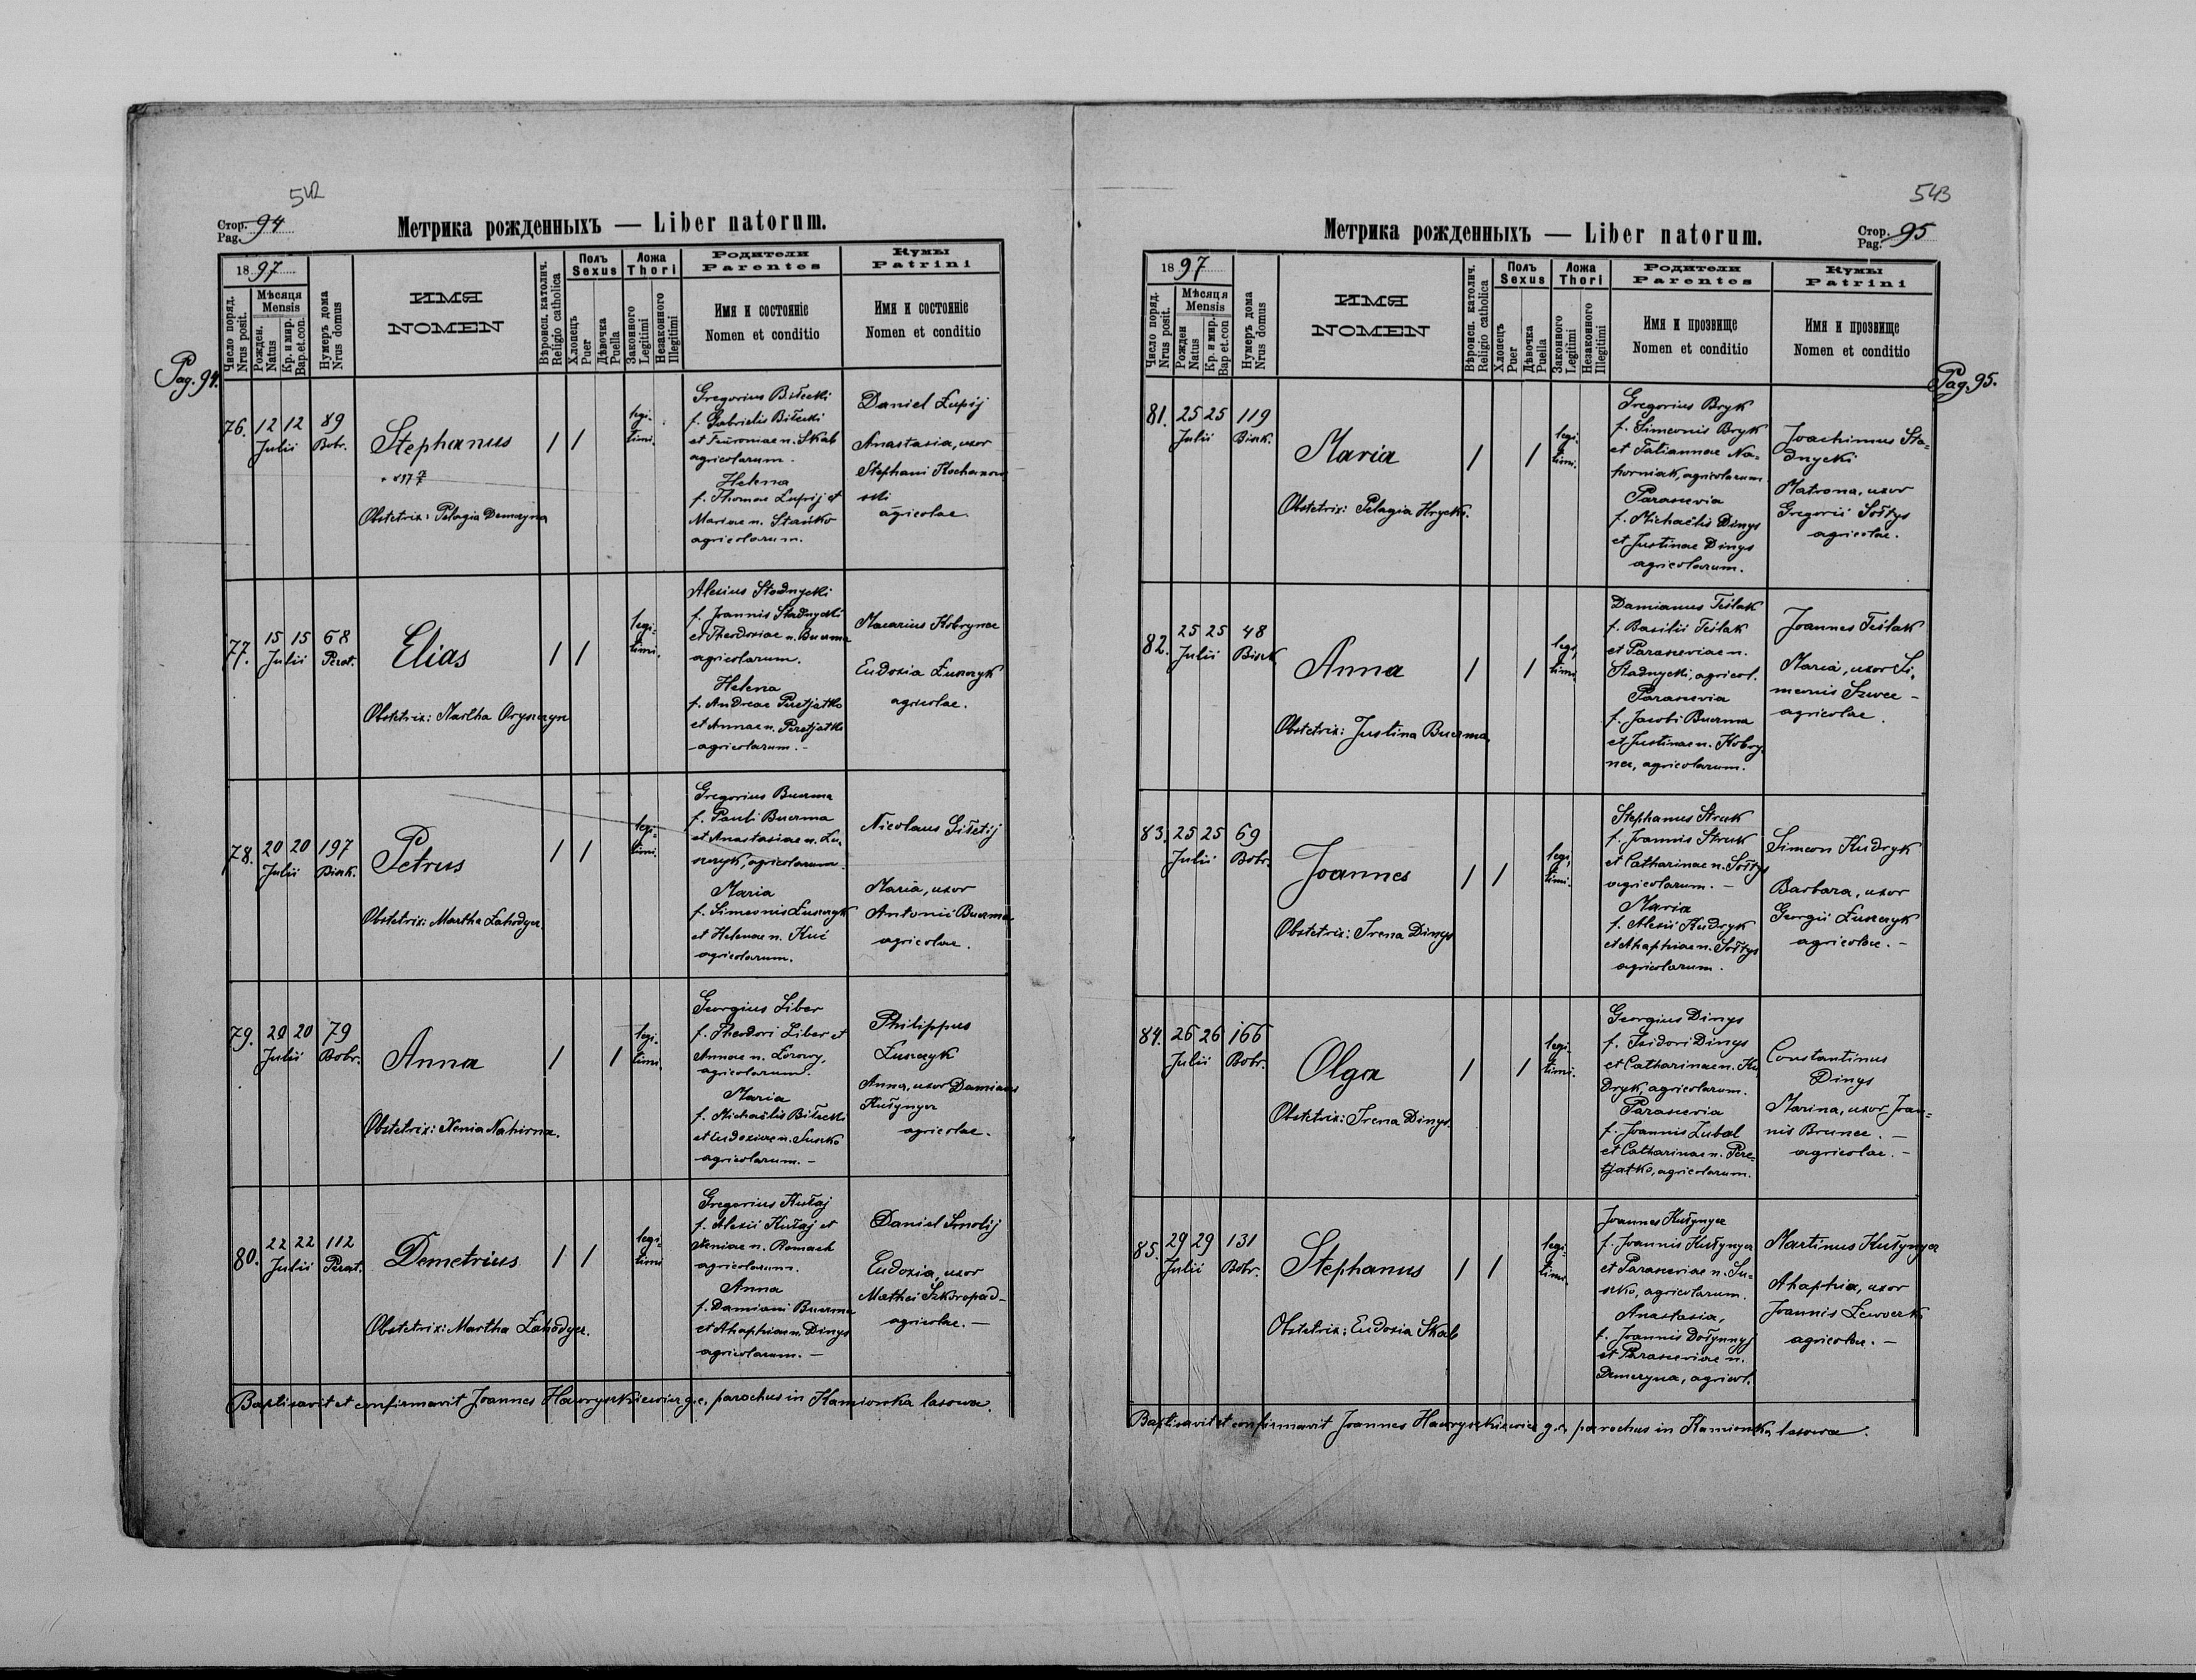 542
Стор. 94
Pag.
Метрика рожденныхъ — Liber natorum.
18 97
Число поряд.
Nrus posit.
Мѣсяця
Mensis
Рожден.
Natus
Кр. и мир.
Bap.et.con.
Нумеръ дома
Nrus domus
ИМЯ
NOMEN
Вѣроисп. католич.
Religio catholica
Полъ
Sexus
Хлопецъ
Puer
Дѣвочка
Puella
Ложа
Thori
Законного
Legitimi
Незаконного
Illegitimi
Родители
Parentes
Имя и состояніе
Nomen et conditio
Кумы
Patrini
Имя и состояніе
Nomen et conditio
Pag. 94.
76. 12 12 89
Julii Bobr.
Stephanus
Obstetrix: Pelagia Demeyna
/ /
legi-
timi.
Gregorius Biłecki
f. Gabrielis Biłecki
et Feuroniae n. Skab
agricolarum.
Helena
f. Thomae Łupij et
Mariae n. Stańko
agricolarum.
Daniel Łupij
Anastasia, uxor
Stephani Kochanow
ski
agricolae.
77. 15 15 68
Julii Perat.
Elias
Obstetrix: Martha Oryszczyn
/ /
legi-
timi.
Alexius Stadnycki
f. Joannis Stadnycki
et Theodoriae n. Buczma
agricolarum.
Helena
f. Andreae Peretjatko
et Annae n. Peretjatko
agricolarum.-
Macarius Kobrynec
Eudoxia Łuszczyk
agricolae.
78. 20 20 197
Julii Bisk.
Petrus
Obstetrix: Martha Zahodyez.
/ /
legi-
timi.
Gregorius Buczma
f. Pauli Buczma
et Anastasiae n. Łu-
szczyk, agricolarum.
Maria
f. Simeonis Łuszczyk
et Helenae n. Kuć
agricolarum.
Nicolaus Giłetij
Maria, uxor
Antonii Buczma
agricolae.
79. 20 20 79
Julii Bobr.
Anna
Obstetrix: Xenia Nahirna.
/ /
legi-
timi.
Georgius Liber
f. Theodori Liber et
Annae n. Łozowy,
agricolarum.
Maria
f. Michaëlis Biłecki
et Eudoxiae n. Suszko
agricolarum.-
Philippus
Łuszczyk
Anna, uxor Damiani
Kułynycz
agricolae.
80. 22 22 112
Julii Perat.
Demetrius
Obstetrix: Martha Zahodyez.
/ /
legi-
timi
Gregorius Kułaj
f. Alexii Kułaj et
Xeniae n. Romach
agricolarum.
Anna
f. Damiani Buczma
et Ahaphiae n. Dinys
agricolarum.-
Daniel Smolij
Eudoxia, uxor
Mathei Szkropad-
agricolae.-
Baptisavit et confirmavit Joannes Hawryszkiewicz g.c. parochus in Kamionka lasowa.
543
Метрика рожденныхъ — Liber natorum.
Стор. 95
Pag.
18 97
Число поряд.
Nrus posit.
Мѣсяця
Mensis
Рожден
Natus
Кр. и мир.
Bap et.con.
Нумеръ дома
Nrus domus
ИМЯ
NOMEN
Вѣроисп. католич.
Religio catholica
Полъ
Sexus
Хлопецъ
Puer
Дѣвочка
Puella
Ложа
Thori
Законного
Legitimi
Незаконного
Illegitimi
Родители
Parentes
Имя и прозвище
Nomen et conditio
Кумы
Patrini
Имя и прозвище
Nomen et conditio
Pag. 95.
81. 25 25 119
Julii Bisk.
Maria
Obstetrix: Pelagia Hrycko.
/ /
legi-
timi.
Gregorius Bryk
f. Simeonis Bryk
et Tatiannae Na-
porniak, agricolarum
Parascevia
f. Michaëlis Dinys
et Justinae Dinys
agricolarum.
Joachimus Sta-
dnycki
Matrona, uxor
Gregorii Sołtys
agricolae.
82. 25 25 48
Julii Bisk
Anna
Obstetrix: Justina Buczma.
/ /
legi-
timi.
Damianus Teślak
f. Basilii Teślak
et Parasceviae n.
Stadnycki, agricol.
Parascevia
f. Jacobi Buczma
et Justinae n. Kobry-
nec, agricolarum.
Joannes Teślak
Maria, uxor Si-
meonis Szwec -
agricolae.
83. 25 25 69
Julii Bobr.
Joannes
Obstetrix: Irena Dinys
/ /
legi-
timi.
Stephanus Struk
f. Joannis Struk
et Catharinae n. Sołtys
agricolarum.-
Maria
f. Alexii Kudryk
et Ahaphiae n. Sołtys
agricolarum.
Simeon Kudryk
Barbara, uxor
Georgii Łuszczyk
agricolae.-
84. 26 26 166
Julii Bobr.
Olga
Obstetrix: Irena Dinys
/ /
legi-
timi.
Georgius Dinys
f. Isidori Dinys
et Catharinae n. Ku
dryk, agricolarum.
Parascevia
f. Joannis Zubal
et Catharinae n. Pere-
tjatko, agricolarum.
Constantinus
Dinys
Marina, uxor Joan-
nis Brunec.-
agricolae.-
85. 29 29 131
Julii Bobr.
Stephanus
Obstetrix: Eudoxia Skab
/ /
legi-
timi.
Joannes Kułynycz
f. Joannis Kułynycz
et Parasceviae n. Su-
szko, agricolarum.
Anastasia,
f. Joannis Dołynnyj
et Parasceviae n.
Demeryna, agricol.
Martinus Kułynycz
Ahaphia, uxor
Joannis
agricolae.-
Baptisavit et confirmavit Joannes Hawryszkiewicz g.c. parochus in Kamionka lasowa.